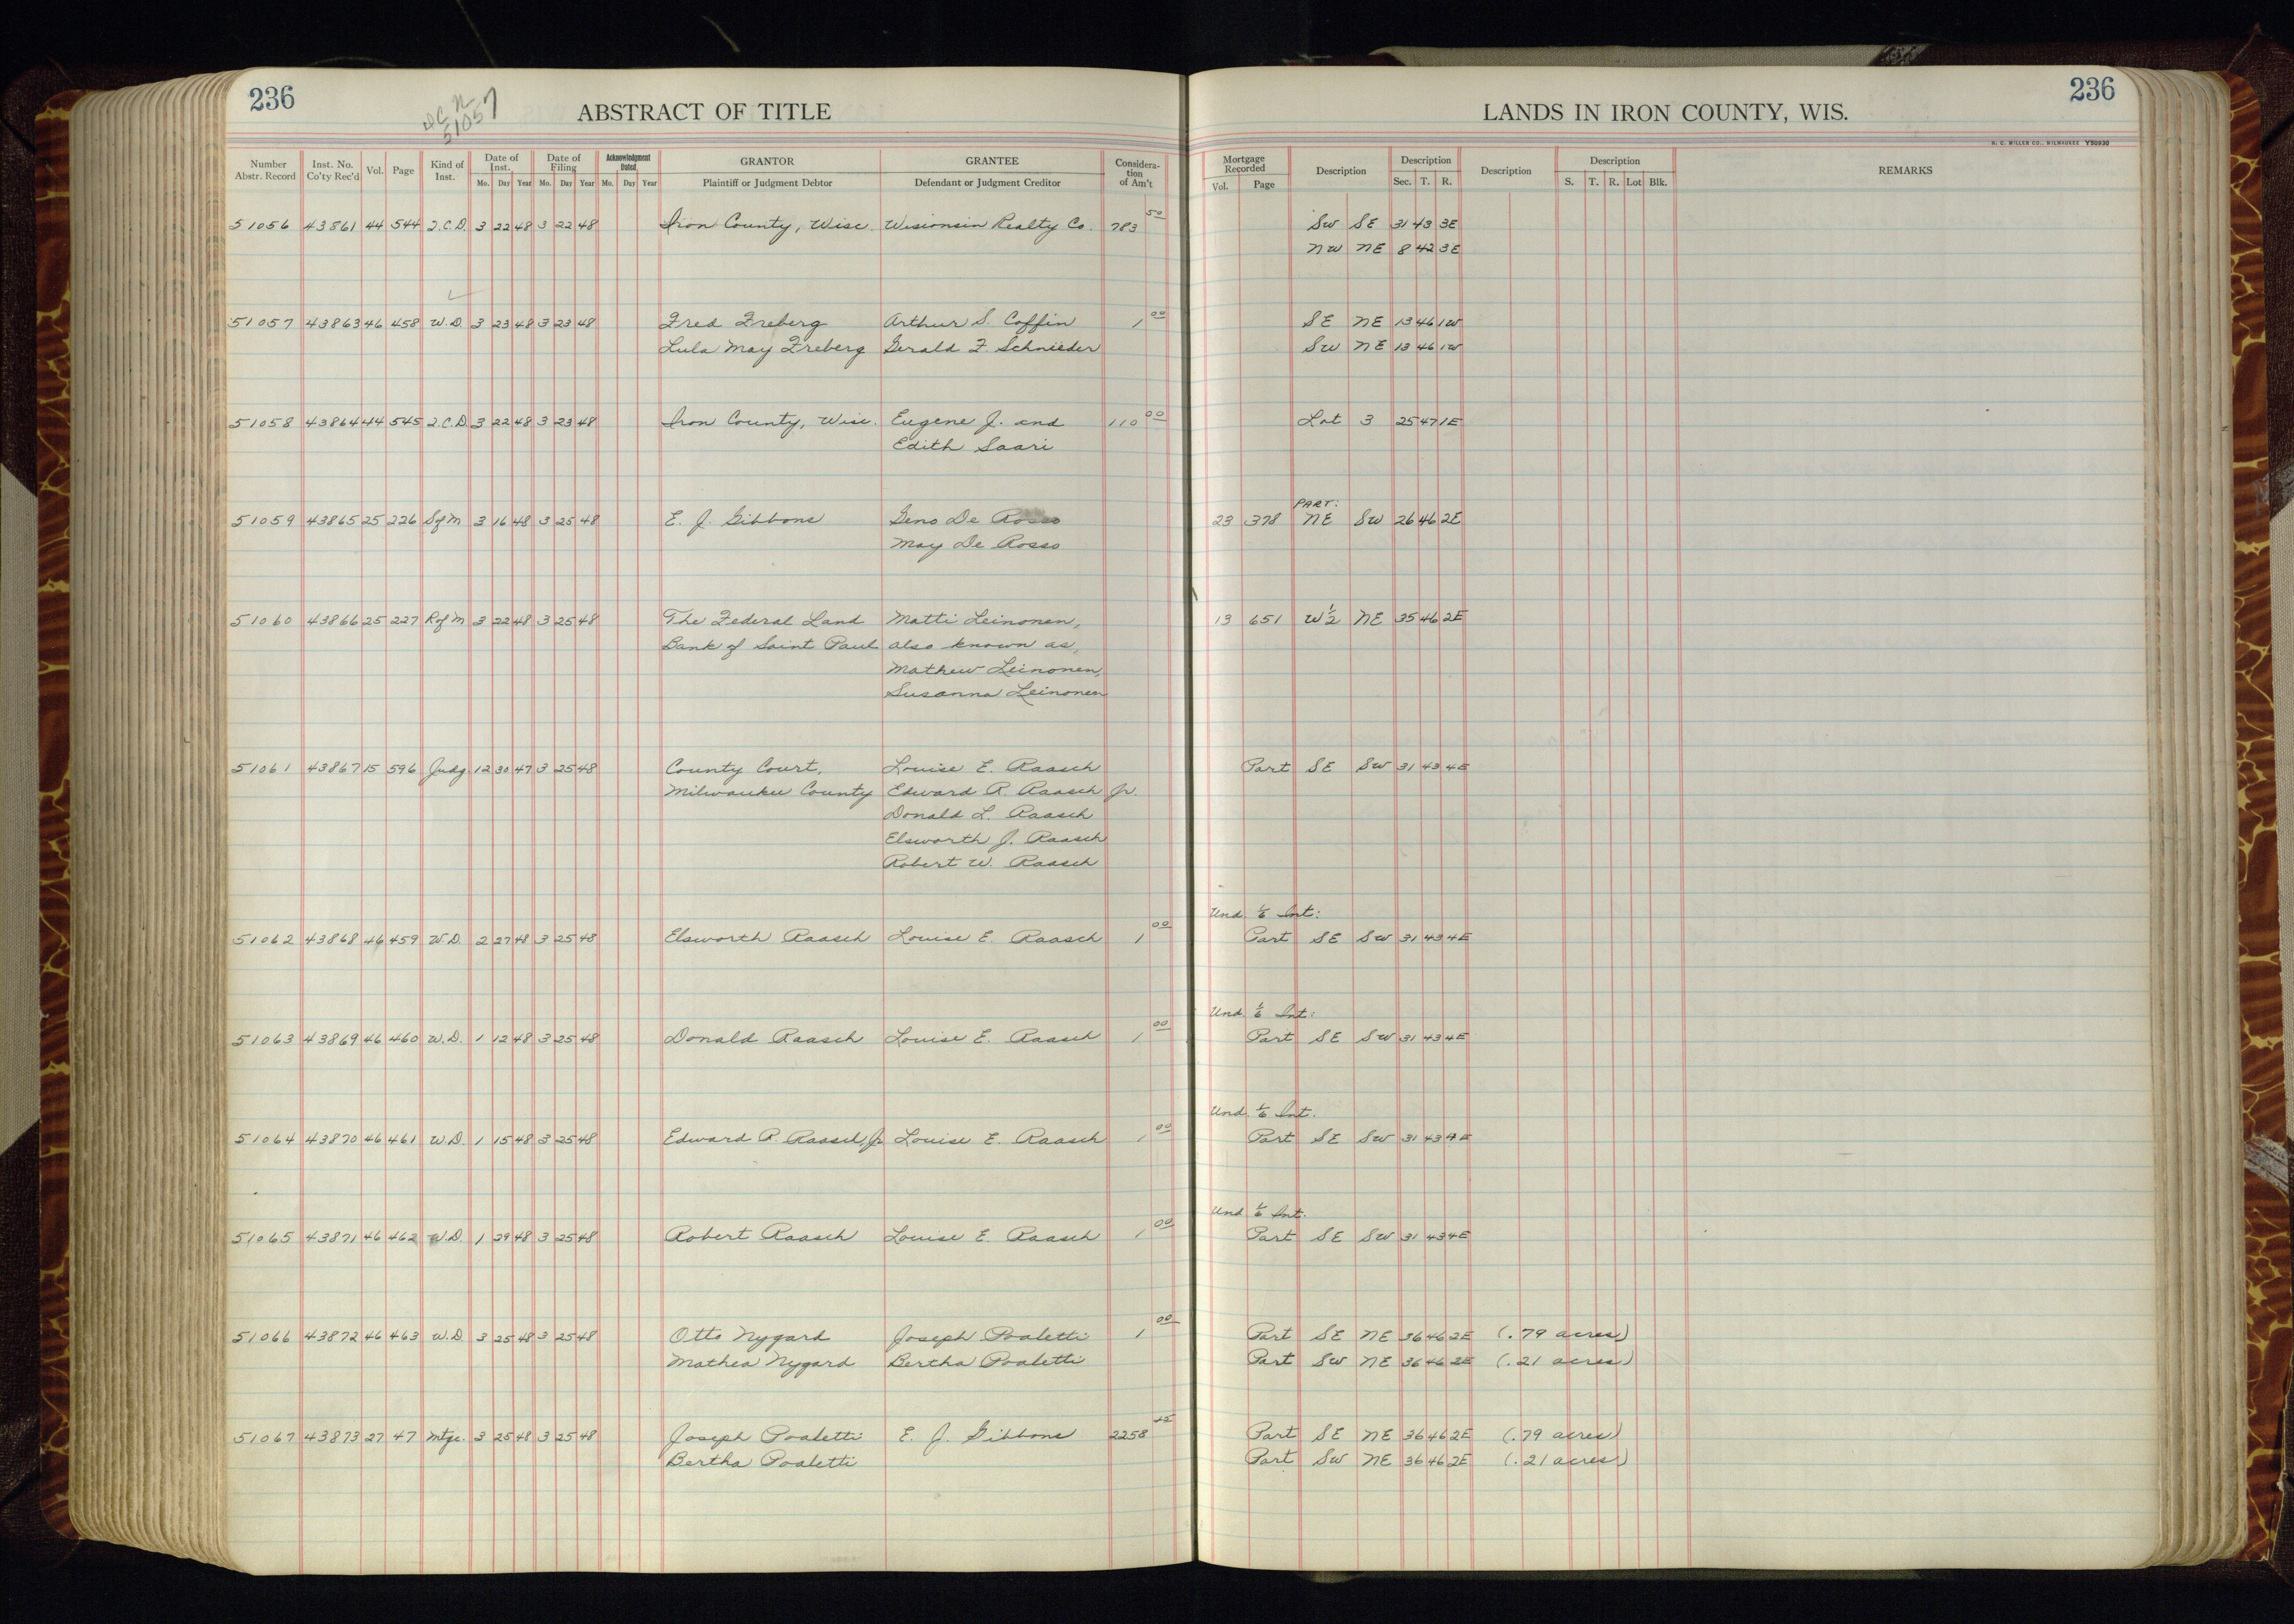 236
ABSTRACT OF TITLE
LANDS IN IRON COUNTY, WIS.
236
51057
H. C. MILLER CO., MILWAUKEE Y50930
Number Abstr. Record Inst. No. Co'ty Rec'd Vol. Page Kind of Inst. Date of Inst. Mo. Day Year Date of Filing Mo. Day Year Acknowledgment Dated Mo. Day Year GRANTOR Plaintiff or Judgment Debtor GRANTEE Defendant or Judgment Creditor Considera-tion of Am't Mortgage Recorded Vol. Page Description Description Sec. T. R. Description Description S. T. R. Lot Blk. REMARKS
51056 43861 44 544 Q.C.D. 3 22 48 3 22 48 Iron County, Wisc. Wisionsin Realty Co. 783 50 SW SE 31 43 3E
NW NE 8 42 3E
51057 43863 46 458 W.D. 3 23 48 3 23 48 Fred Freberg Arthur S. Coffin 1 00 SE NE 13 46 1W
Lula May Freberg Gerald F. Schnieder SW NE 13 46 1W
51058 43864 44 545 Q.C.D. 3 22 48 3 23 48 Iron County, Wisc. Eugene J. and 110 00 Lot 3 25 47 1E
Edith Saari
PART:
51059 43865 25 226 S of M 3 16 48 3 25 48 E. J. Gibbons Geno De Rosso 23 378 NE SW 26 46 2E
May De Rosso
51060 43866 25 227 R of M 3 22 48 3 25 48 The Federal Land Matti Leinonen, 13 651 W 1/2 NE 35 46 2E
Bank of Saint Paul also known as,
Mathew Leinonen,
Susanna Leinonen
51061 43867 15 596 Judg. 12 30 47 3 25 48 County Court, Louise E. Raasch Part SE SW 31 43 4E
Milwaukee County Edward R. Raasch Jr.
Donald L. Raasch
Elsworth J. Raasch
Robert W. Raasch
Und. 1/6 Int:
51062 43868 46 459 W.D. 2 27 48 3 25 48 Elsworth Raasch Louise E. Raasch 1 00 Part SE SW 31 43 4E
Und. 1/6 Int:
51063 43869 46 460 W.D. 1 12 48 3 25 48 Donald Raasch Louise E. Raasch 1 00 Part SE SW 31 43 4E
Und. 1/6 Int.
51064 43870 46 461 W.D. 1 15 48 3 25 48 Edward R. Raasch Jr. Louise E. Raasch 1 00 Part SE SW 31 43 4E
Und 1/6 Int.
51065 43871 46 462 W.D. 1 29 48 3 25 48 Robert Raasch Louise E. Raasch 1 00 Part SE SW 31 43 4E
51066 43872 46 463 W.D. 3 25 48 3 25 48 Otto Nygard Joseph Poaletti 1 00 Part SE NE 36 46 2E (.79 acres)
Mathea Nygard Bertha Poaletti Part SW NE 36 46 2E (.21 acres)
51067 43873 27 47 Mtge. 3 25 48 3 25 48 Joseph Poaletti E. J. Gibbons 2258 Part SE NE 36 46 2E (.79 acres)
Bertha Poaletti Part SW NE 36 46 2E (.21 acres)